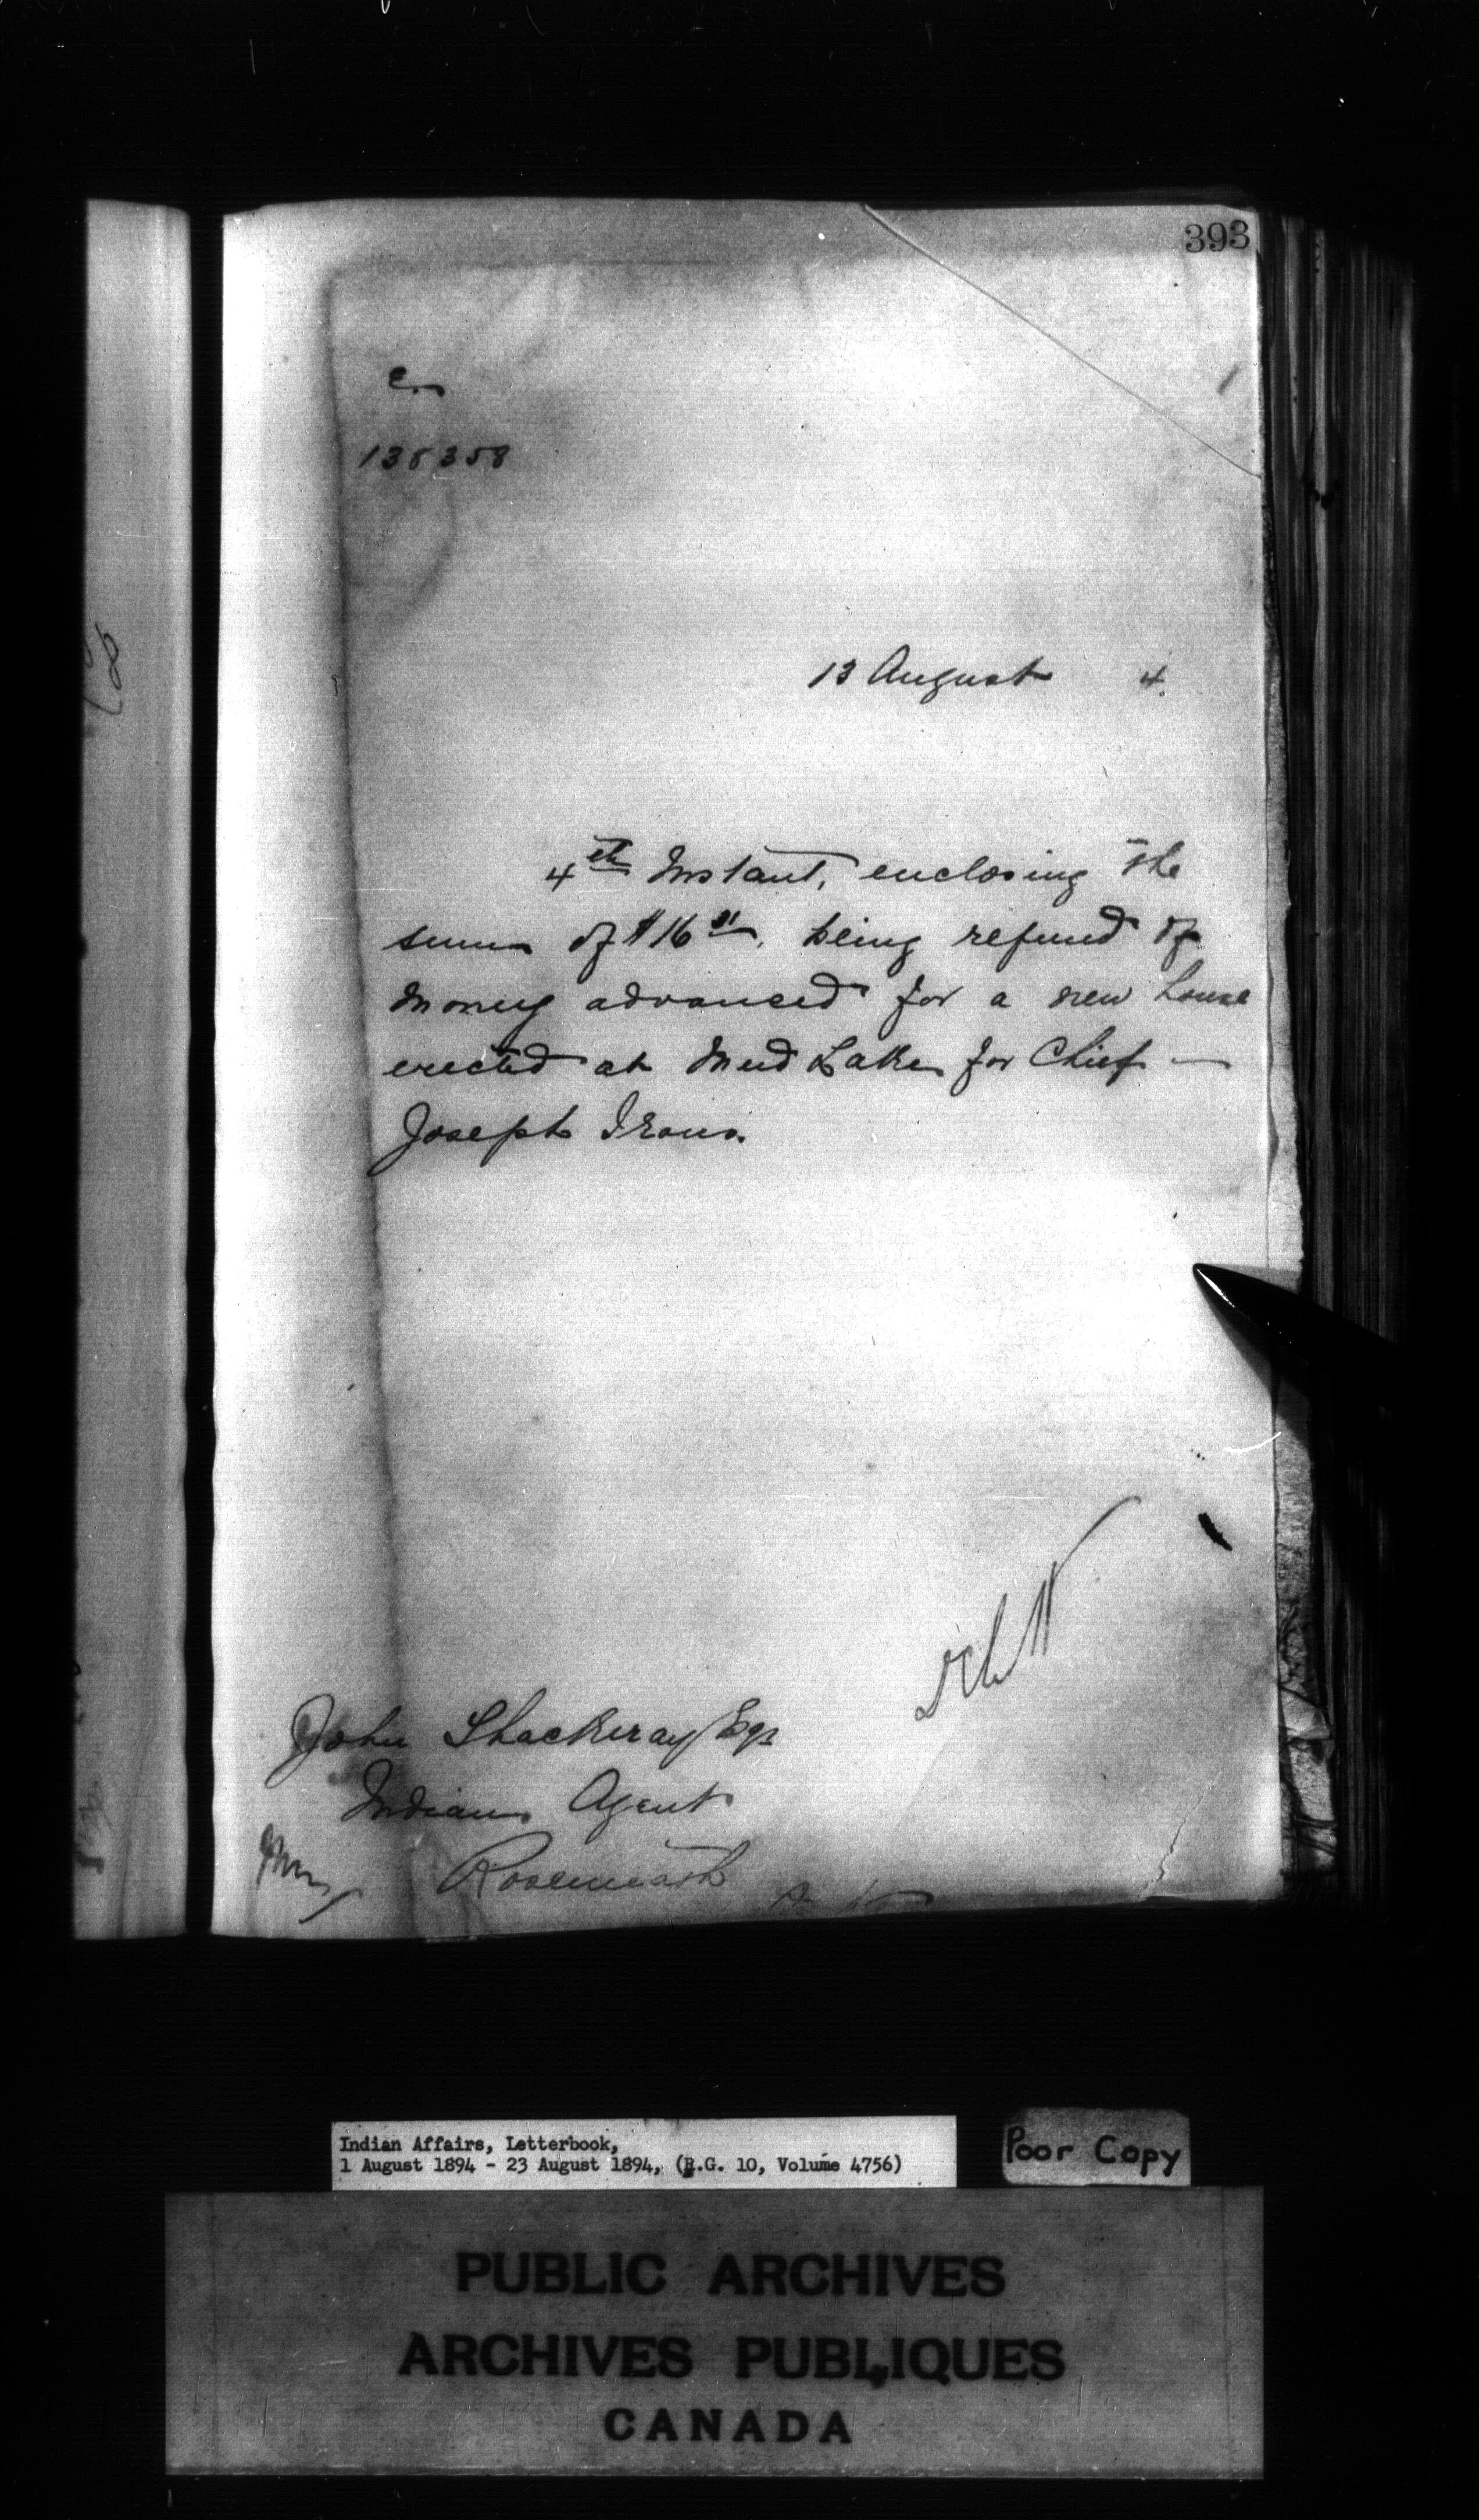 393
138358
13 August 4.
4th Instant, enclosing the
sum of $16 31, being refund of
money advanced for a new house
erected at Mud Lake for Chief —
Joseph Irons.
John Thackeray Esqr
Indian Agent
Roseneath
Indian Affairs, Letterbook,
1 August 1894 - 23 August 1894, (R.G. 10, Volume 4756)
Poor Copy
PUBLIC ARCHIVES
ARCHIVES PUBLIQUES
CANADA